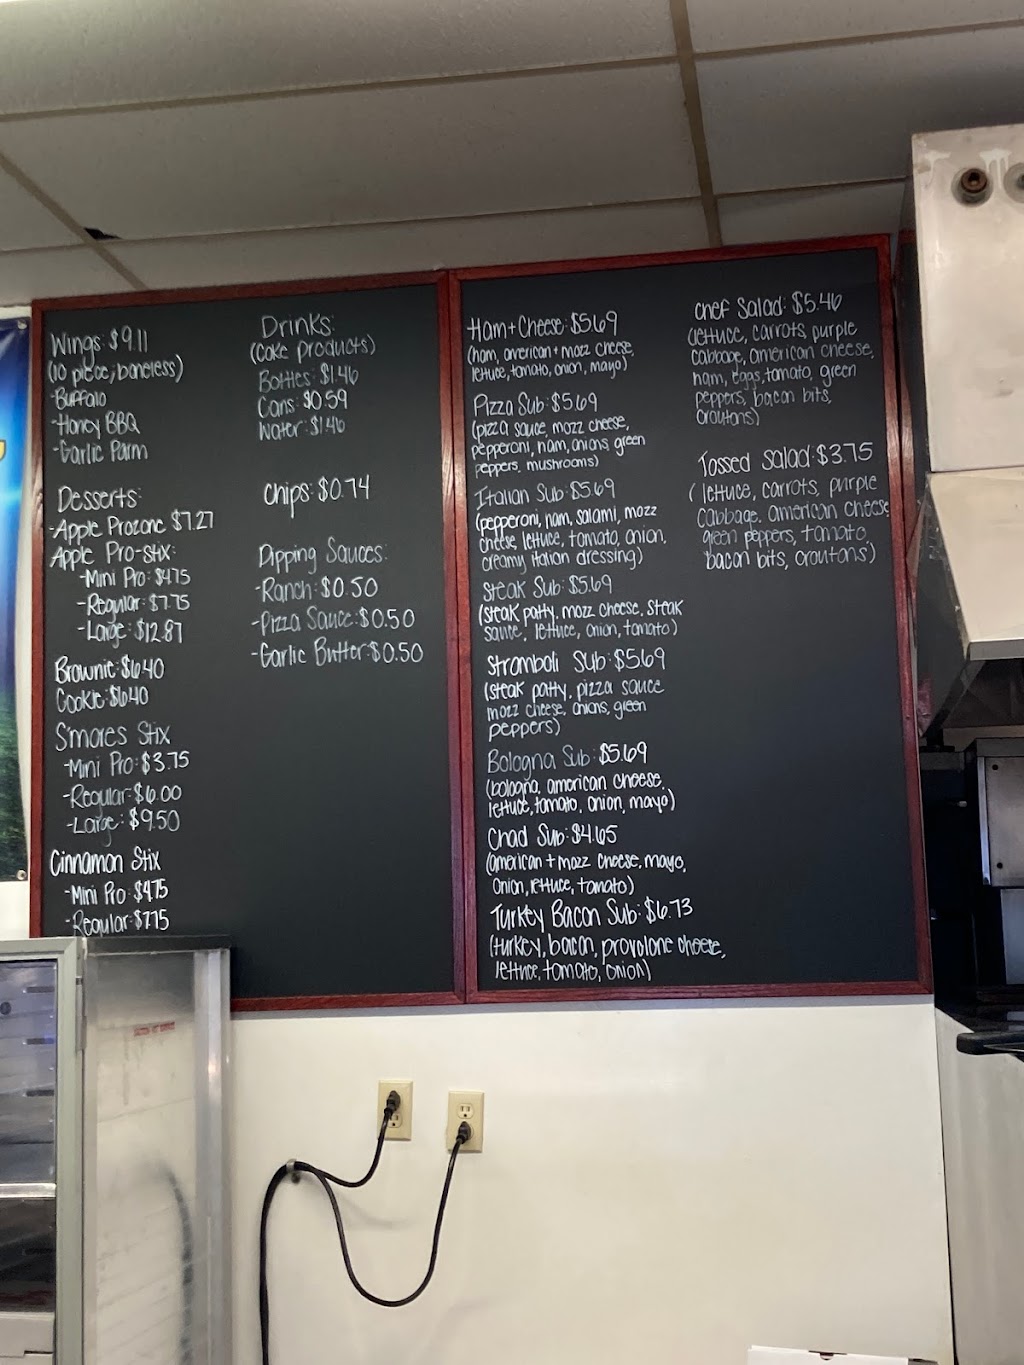 Wings: $9.11
(10 piece, boneless)
-Buffalo
-Honey BBQ
-Garlic Parm
Desserts:
-Apple Prozone $7.27
Apple Pro-stix:
-Mini Pro: $4.75
-Regular: $7.75
-Large: $12.87
Brownie: $6.40
Cookie: $6.40
S'mores Stix
-Mini Pro: $3.75
-Regular: $6.00
-Large: $9.50
Cinnamon Stix
-Mini Pro: $4.75
-Regular: $7.75
Drinks:
(Coke products)
Bottles: $1.46
Cans: $0.59
Water: $1.46
Chips: $0.74
Dipping Sauces:
-Ranch: $0.50
-Pizza Sauce: $0.50
-Garlic Butter: $0.50
Ham + Cheese: $5.69
(ham, american + mozz cheese,
lettuce, tomato, onion, mayo)
Pizza Sub: $5.69
(pizza sauce, mozz cheese,
pepperoni, ham, onions, green
peppers, mushrooms)
Italian Sub: $5.69
(pepperoni, ham, salami, mozz
cheese, lettuce, tomato, onion,
creamy italian dressing)
Steak Sub: $5.69
(steak patty, mozz cheese, steak
sauce, lettuce, onion, tomato)
Stromboli Sub: $5.69
(steak patty, pizza sauce
mozz cheese, onions, green
peppers)
Bologna Sub: $5.69
(bologna, american cheese,
lettuce, tomato, onion, mayo)
Chad Sub: $4.65
(american + mozz cheese, mayo,
onion, lettuce, tomato)
Turkey Bacon Sub: $6.73
(turkey, bacon, provolone cheese,
lettuce, tomato, onion)
Chef Salad: $5.46
(lettuce, carrots, purple
cabbage, american cheese,
ham, eggs, tomato, green
peppers, bacon bits,
croutons)
Tossed Salad: $3.75
(lettuce, carrots, purple
cabbage, american cheese
green peppers, tomato,
bacon bits, croutons)